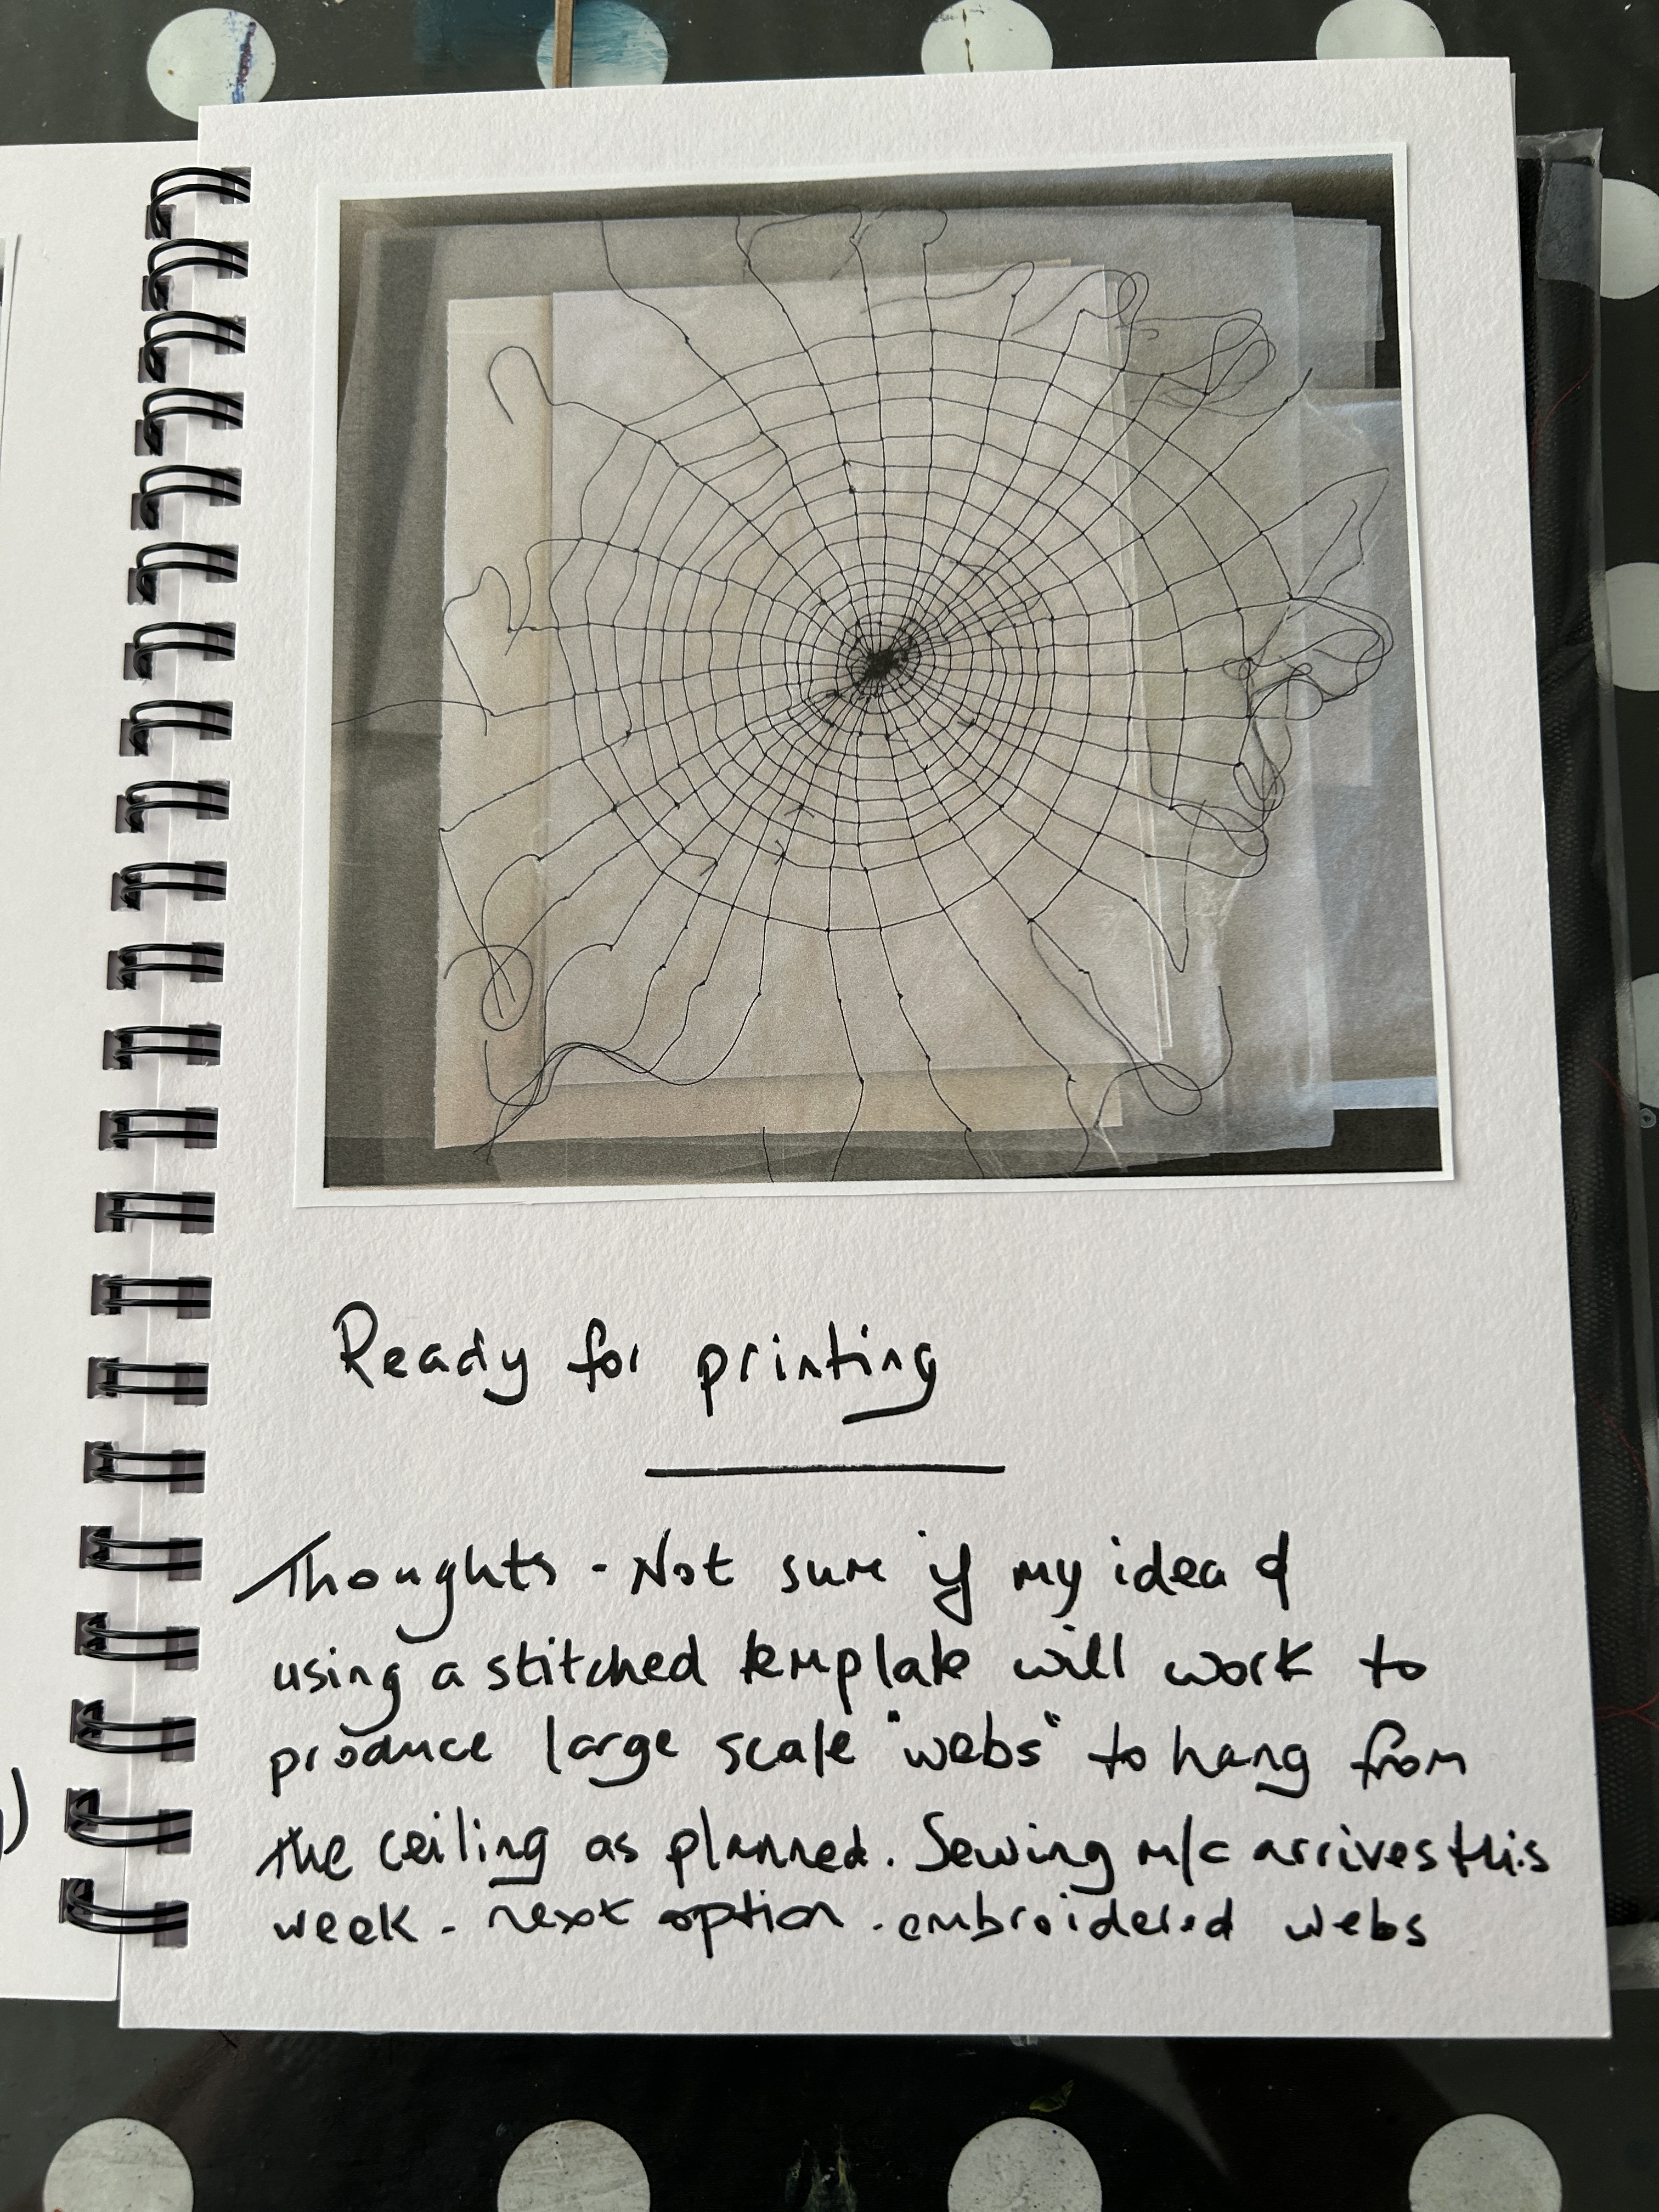 Ready for printing
Thoughts - Not sure if my idea of
using a stitched template will work to
produce large scale "webs" to hang from
the ceiling as planned. Sewing m/c arrives this
week - next option - embroidered webs